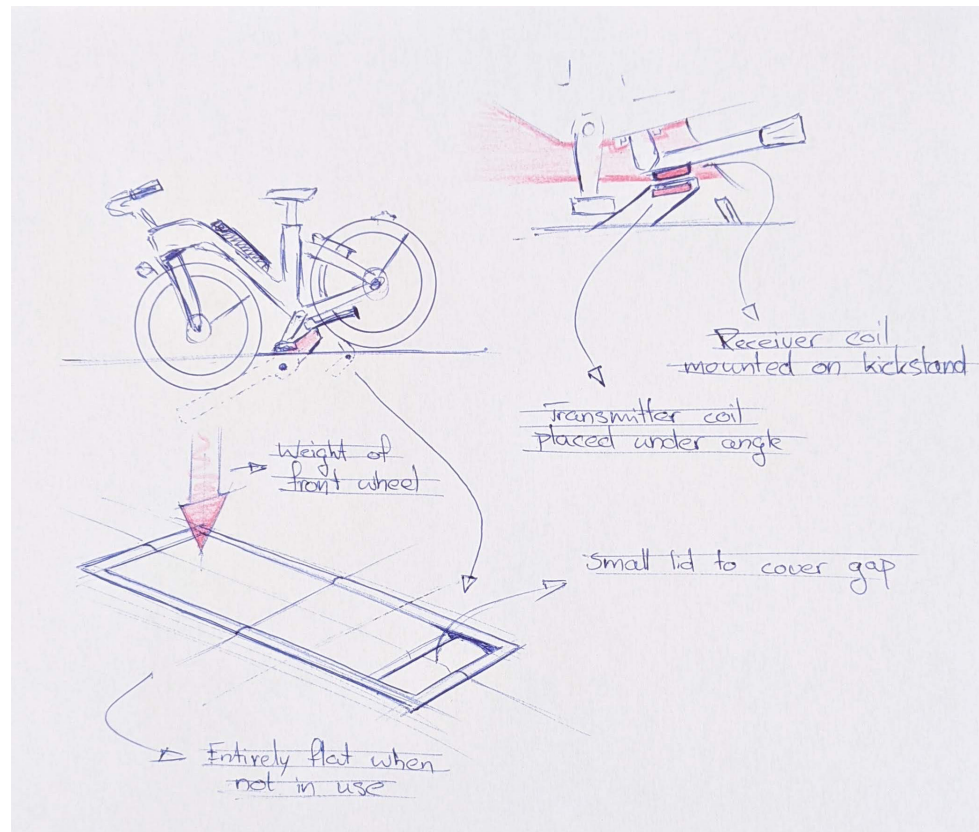 Receiver coil
mounted on kickstand
Transmitter coil
placed under angle
Weight of
front wheel
Small lid to cover gap
Entirely flat when
not in use